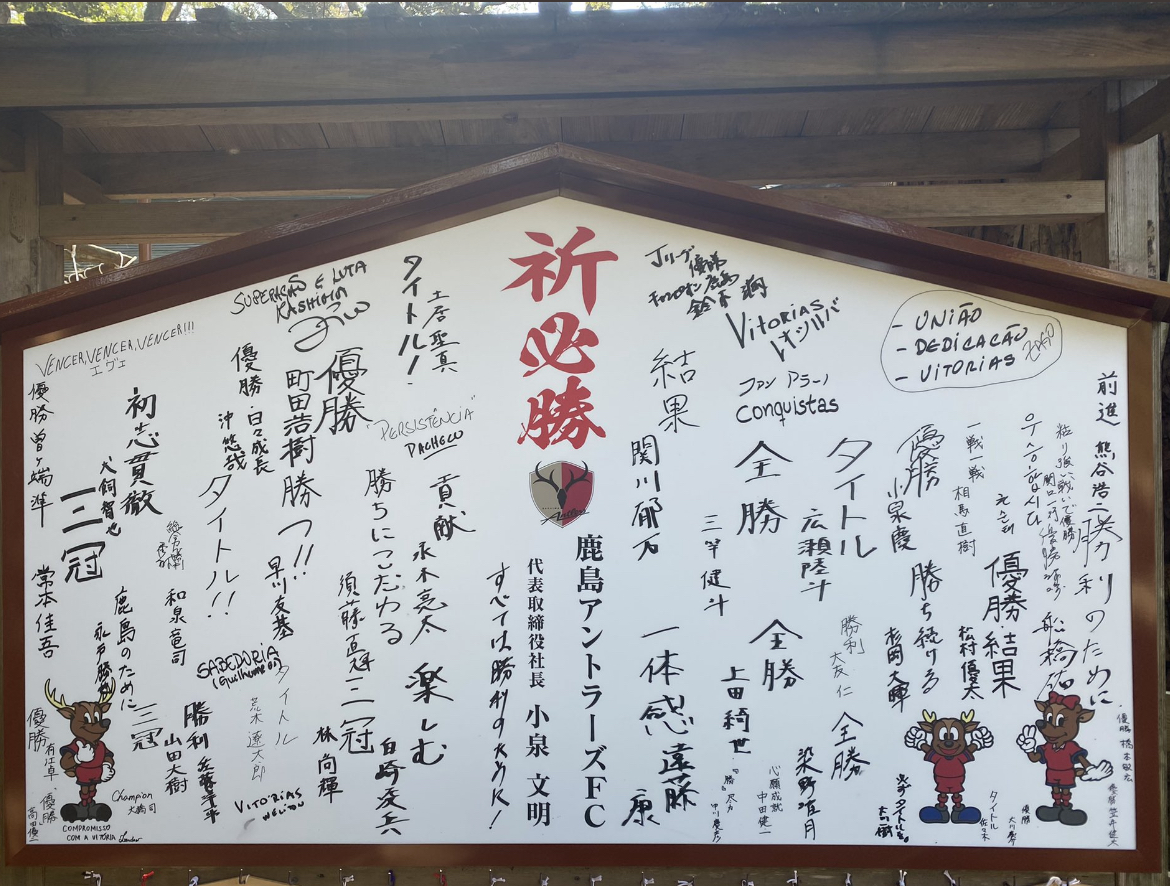 祈必勝
鹿島アントラーズFC
代表取締役社長 小泉 文明
すべては勝利のために!
Jリーグ
優勝
鈴木
VITORIAS
ファン アラーノ
Conquistas
- UNIÃO
- DEDICAÇÃO
- VITORIAS
ZAGO
前進 熊谷浩二
勝利のために
粘り強い戦いで優勝
우승합시다
一戦一戦 相馬直樹
優勝 小泉慶
優勝 結果
松村優太
タイトル 広瀬陸斗
勝ち続ける
杉岡大暉
勝利 大友 仁
全勝
染野唯月
全勝
三竿 健斗
全勝
上田綺世
心願成就
中田健二
結果
関川郁万
一体感 遠藤 康
優勝 橋本
笠井健太
タイトル
佐々木
優勝
タイトル!
土居聖真
SUPERAÇÃO E LUTA
KASHIMA
優勝
町田浩樹
"PERSISTÊNCIA"
PACHECO
貢献 永木亮太
楽しむ
勝ちにこだわる
白崎凌兵
須藤直冠
三冠
林 尚輝
勝つ!!
早川友基
優勝 日々成長
沖 悠哉
タイトル!!
SABEDORIA
(Guilherme)
タイトル
荒木遼太郎
VITÓRIAS
VENCER, VENCER, VENCER!!!
エヴェ
初志貫徹
犬飼智也
和泉竜司
勝利
山田大樹
鹿島のために
永戸勝也
三冠
優勝 曽ヶ端準
三冠
常本佳吾
優勝 有江卓
優勝
Champion
大橋司
COMPROMISSO
COM A VITÓRIA